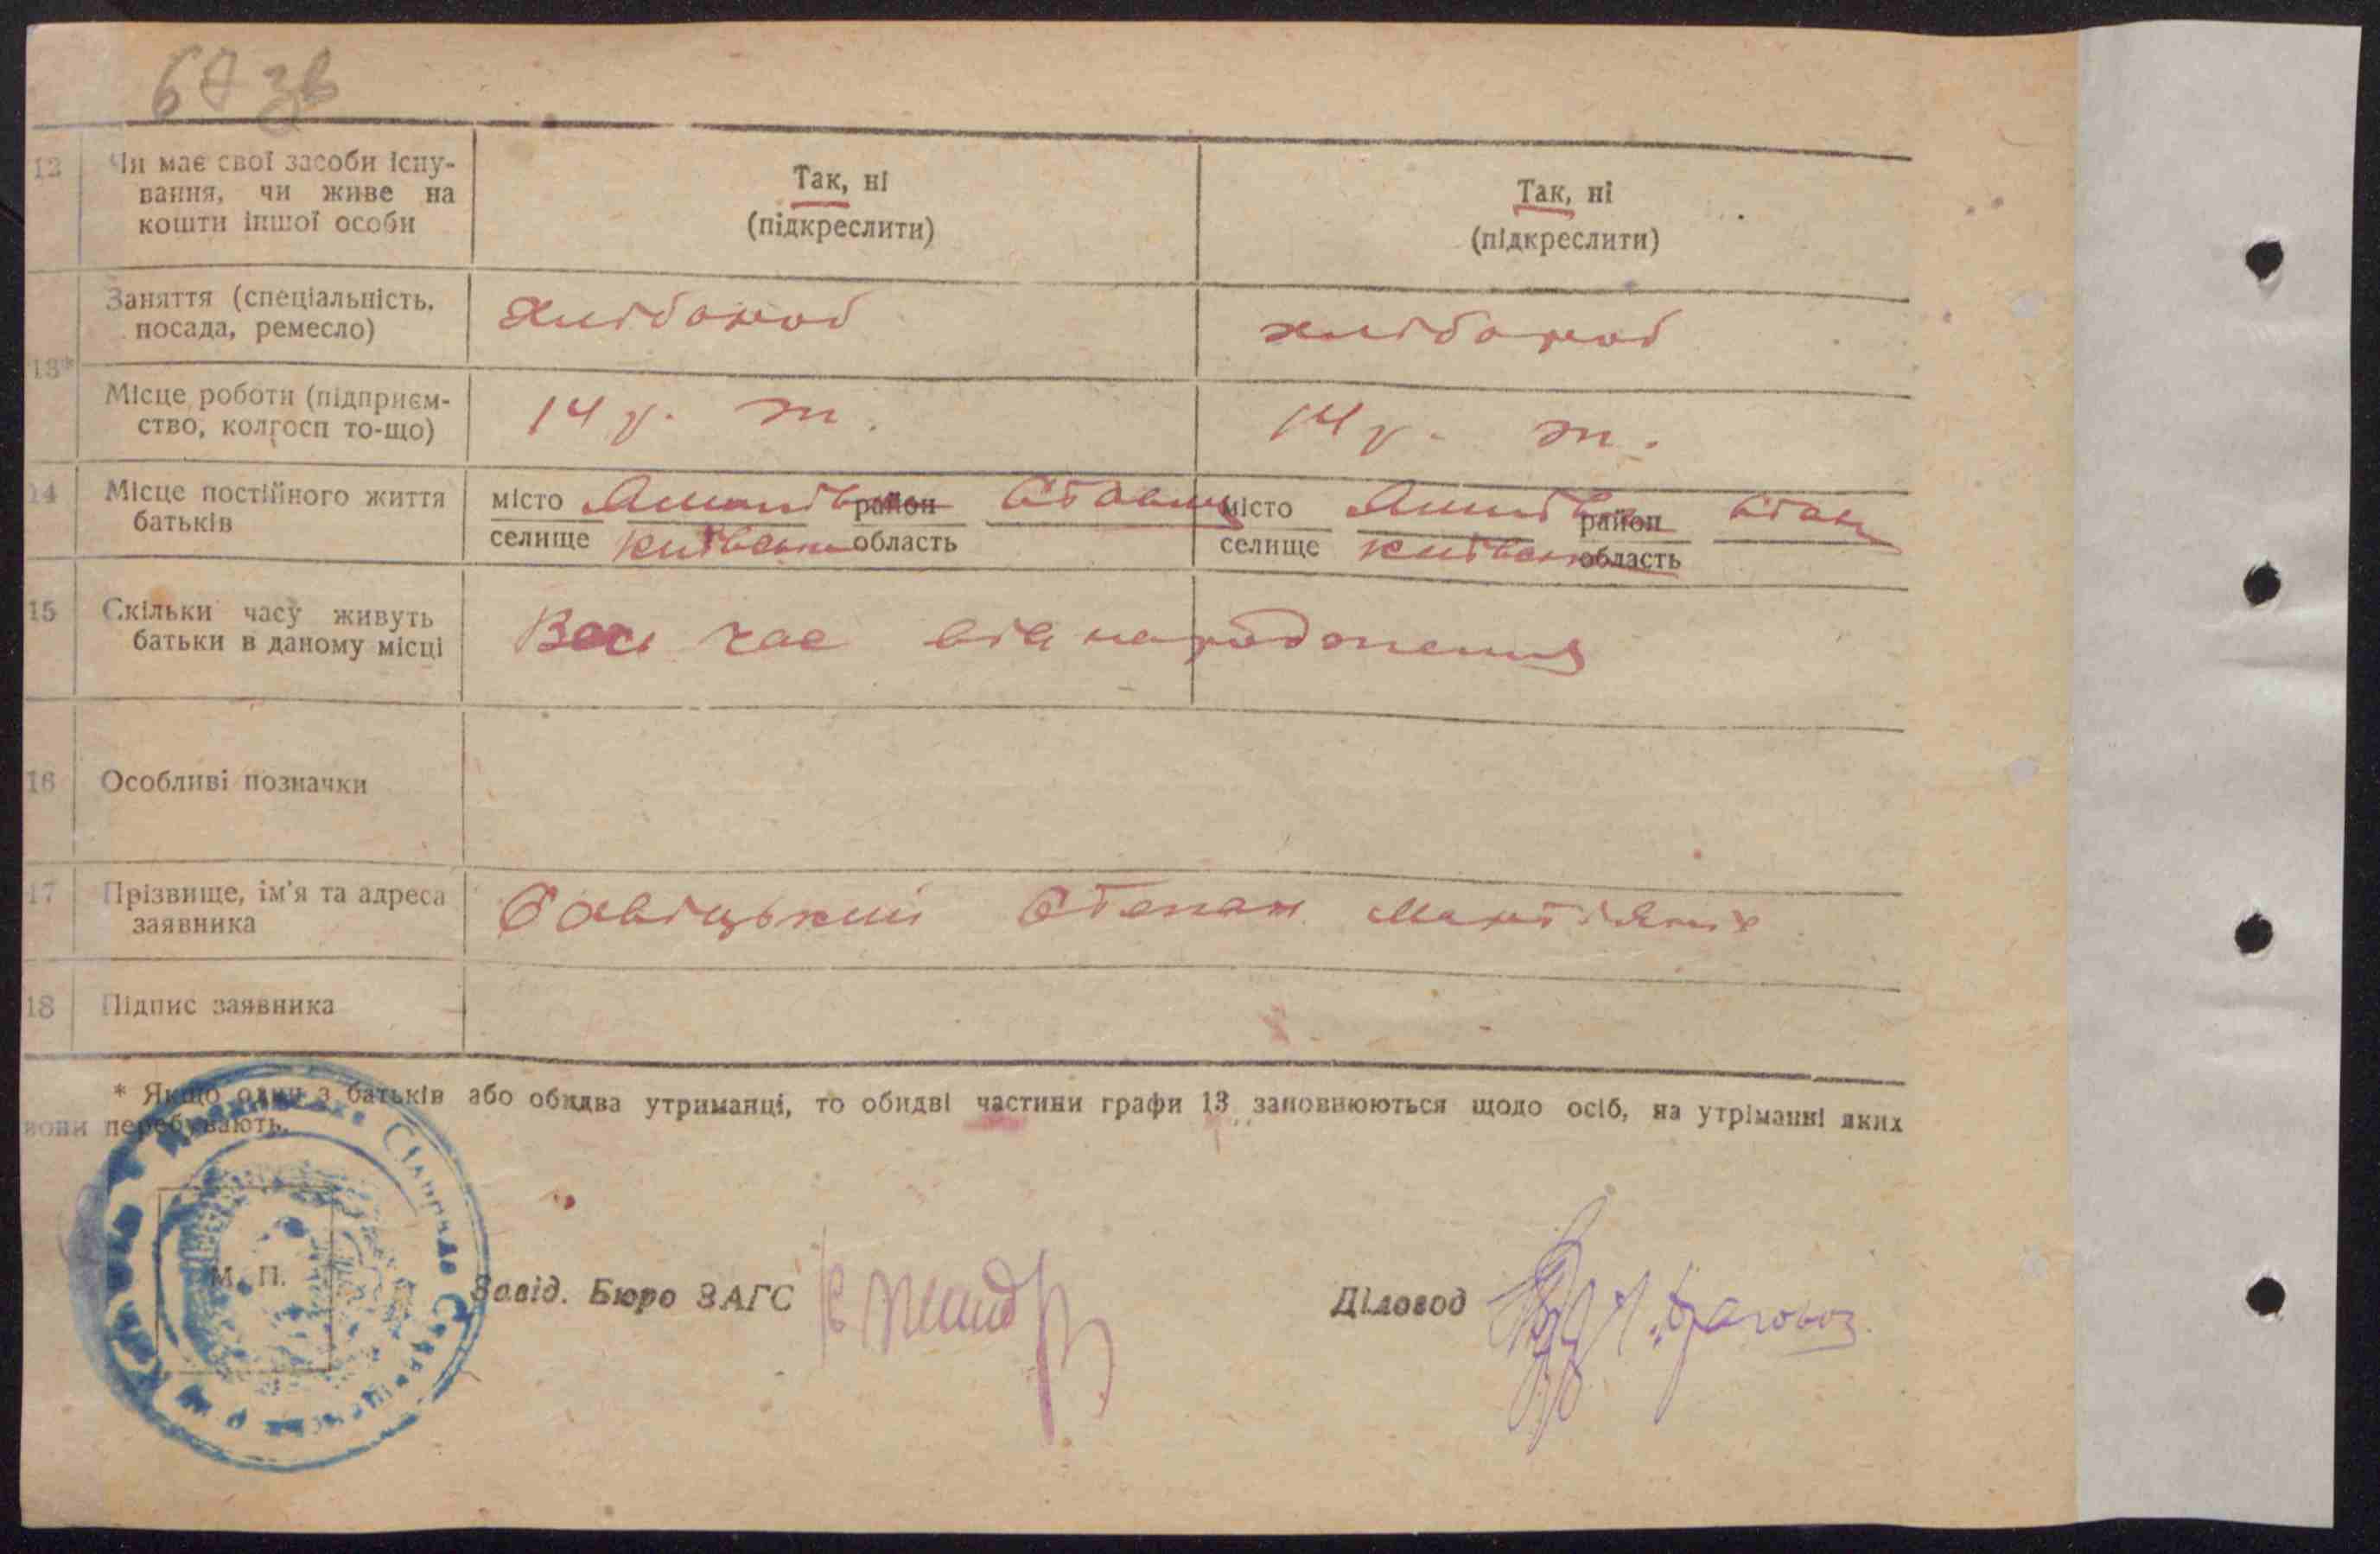 67 зв
12 Чи має свої засоби існу-
вання, чи живе на
кошти іншої особи
Так, ні
(підкреслити)
Так, ні
(підкреслити)
13*
Заняття (спеціальність,
посада, ремесло)
Хлібороб
хлібороб
Місце роботи (підприєм-
ство, колгосп то-що)
14 р. т.
14 р. т.
14 Місце постійного життя
батьків
місто район
селище Київська область
місто район
селище Київська область
15 Скільки часу живуть
батьки в даному місці
Весь час від народження
16 Особливі позначки
17 Прізвище, ім'я та адреса
заявника
Савіцький Степан
18 Підпис заявника
* Якщо один з батьків або обидва утриманці, то обидві частини графи 13 заповнюються щодо осіб, на утріманні яких
вони перебувають.
М. П.
Завід. Бюро ЗАГС
Діловод